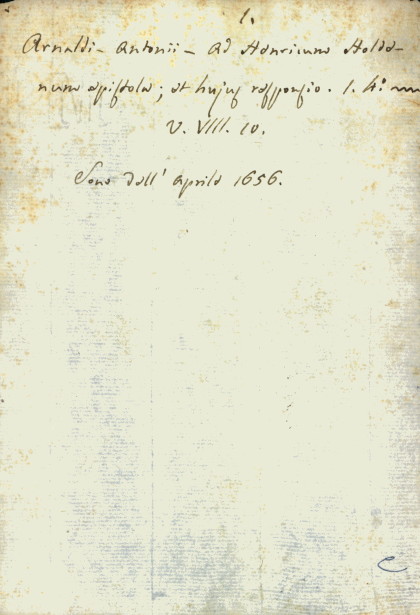 1.
Arnaldi - Antonii - Ad Henricum Holde-
num epistola; et hujus responsio. 1. 4.°
V. VIII. 10.
Sono dell' Aprile 1656.